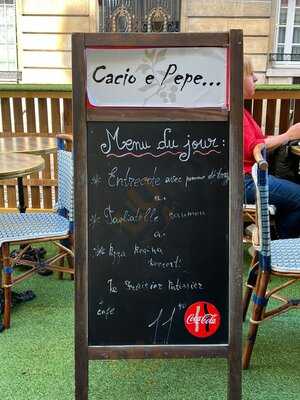 Cacio e Pepe...
Menu du jour:
* Entrecote avec pomme de terre
ou
* Tagliatelle saumon
ou
* Pizza Regina
Dessert:
Le Fraisier Patissier
cafe
Coca-Cola